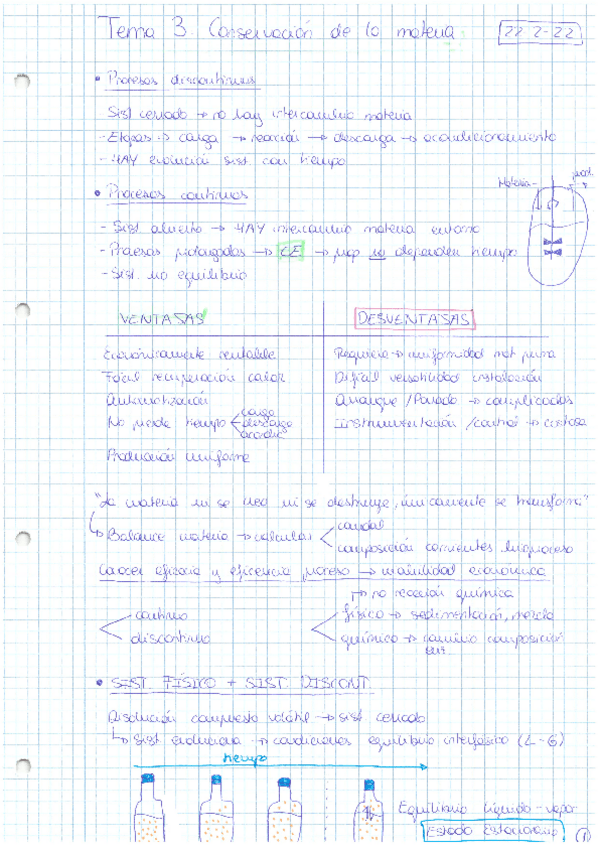 Tema 3. Conservación de la materia
22-2-22
• Procesos discontinuos
Sist cerrado → no hay intercambio materia
- Etapas → carga → reacción → descarga → acondicionamiento
- HAY evolución sist con tiempo
• Procesos continuos
Materia
prod.
- Sist abierto → HAY intercambio materia entorno
- Procesos prolongados → EE → prop no dependen tiempo
- Sist. no equilibrio
VENTAJAS
DESVENTAJAS
Económicamente rentable
Requiere → uniformidad mat prima
Fácil recuperación calor
Difícil versatilidad instalación
Automatización
Arranque / Parada → complicados
No pierde tiempo
carga
descarga
acondic
Instrumentación / control → costosa
Producción uniforme
"La materia ni se crea ni se destruye, únicamente se transforma"
Balance materia → calcular
caudal
composición corrientes bioproceso
Conocer eficacia y eficiencia proceso → viabilidad económica
→ no reacción química
continuo
discontinuo
físico → sedimentación, mezcla
químico → cambio composición
• SIST. FÍSICO + SIST. DISCONT.
Disolución compuesto volátil → sist cerrado
↳ sist evoluciona → condiciones equilibrio interfásico (L-G)
tiempo
Equilibrio líquido-vapor
Estado Estacionario
1